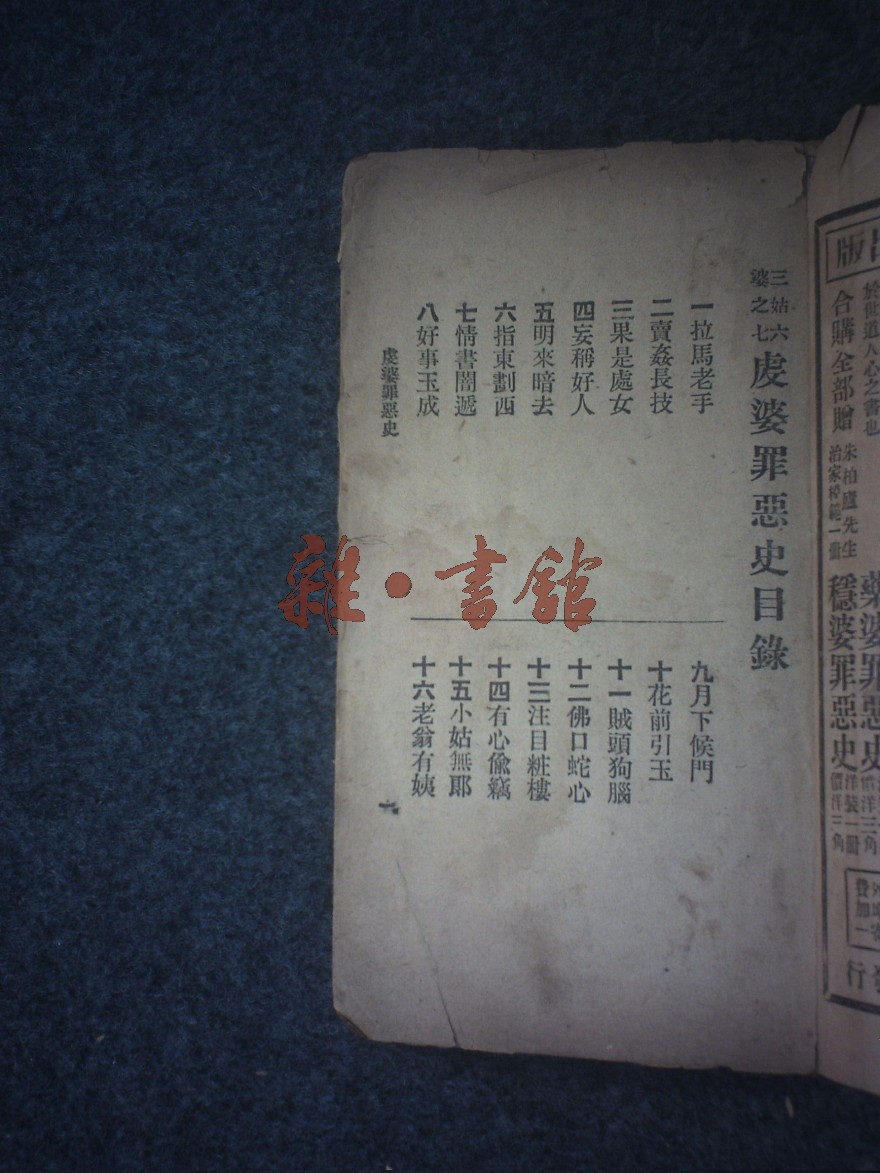 三姑六
婆之七
虔婆罪惡史目錄
一拉馬老手
二賣姦長技
三果是處女
四妄稱好人
五明來暗去
六指東劃西
七情書闇遞
八好事玉成
九月下候門
十花前引玉
十一賊頭狗腦
十二佛口蛇心
十三注目粧樓
十四有心偸竊
十五小姑無郎
十六老翁有姨
虔婆罪惡史
一
雜·書館
版
於世道人心之書也
合購全部贈
朱柏廬先生
治家模範一冊
藥婆罪惡史
穩婆罪惡史
洋裝一冊
價洋三角
費加一
行